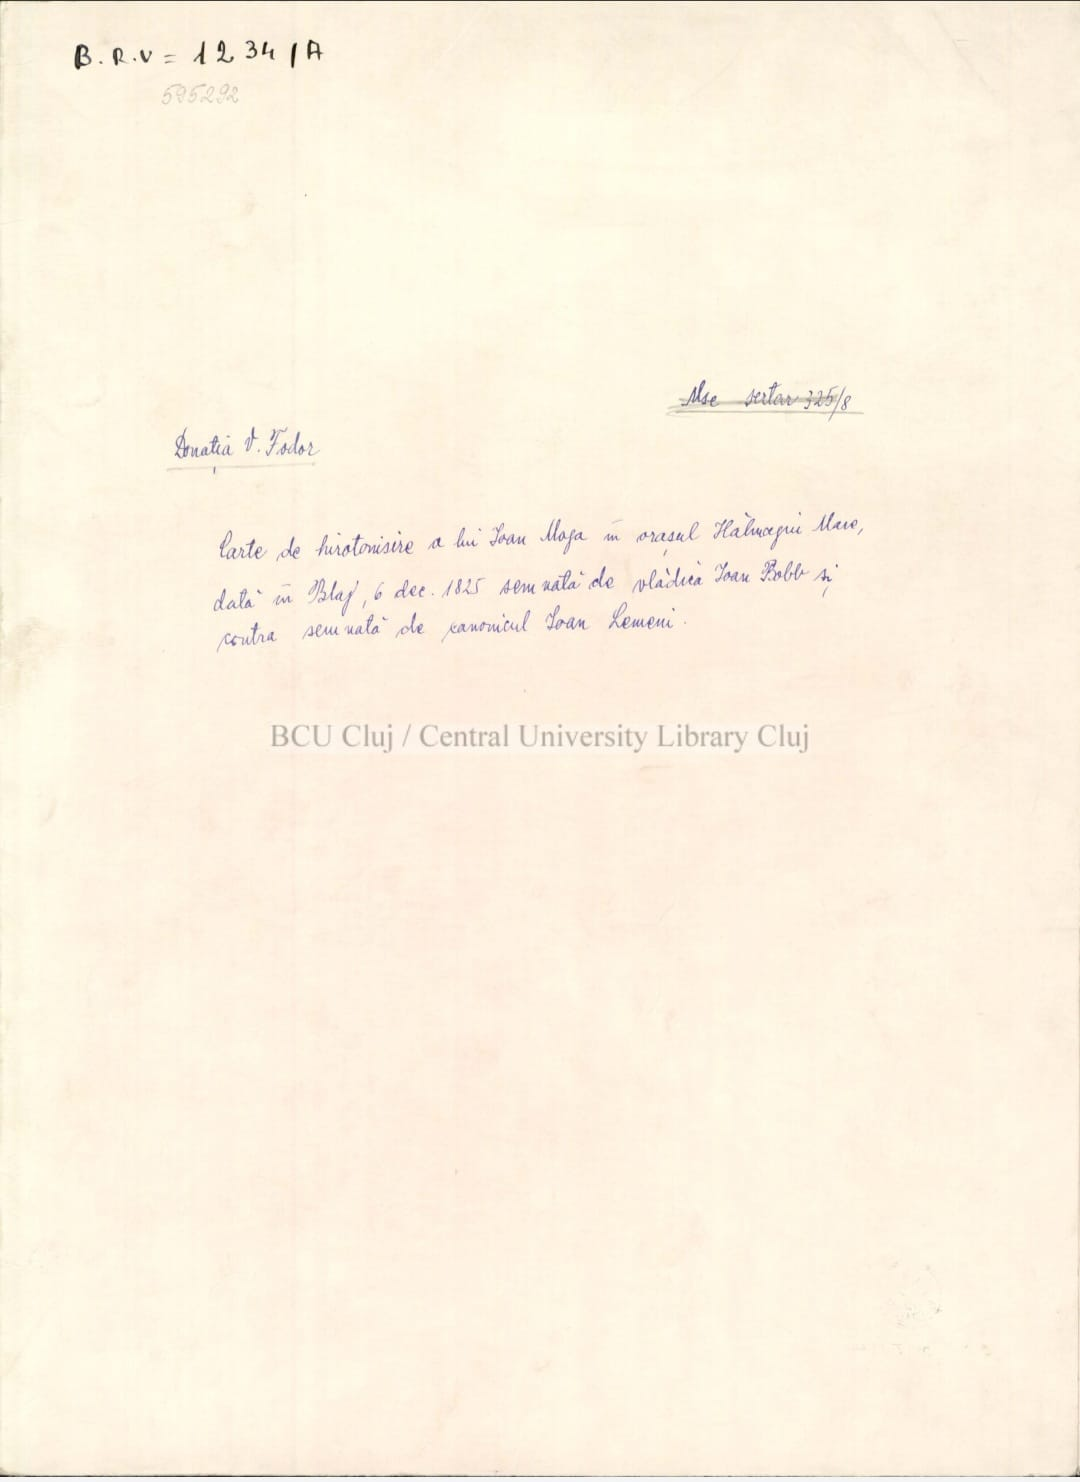 B.R.V = 1234/A
595292
Mse sertar 325/8
Donația V. Fodor
Carte de hirotonisire a lui Ioan Moga în orașul Hălmagiu Mare,
dată în Blaj, 6 dec. 1825 semnată de vlădica Ioan Bobb și
contra semnată de canonicul Ioan Lemeni.
BCU Cluj / Central University Library Cluj